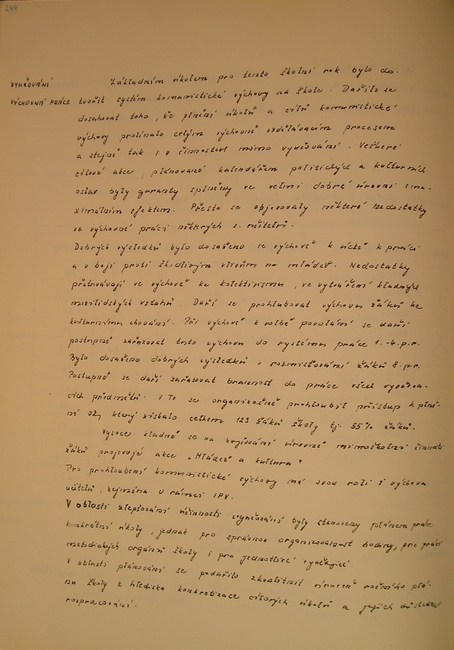 244
VYHODNOCENÍ
VÝCHOVNÉ PRÁCE
Základním úkolem pro tento školní rok bylo do-
tvořit systém komunistické výchovy na škole. Dařilo se
dosahovat toho, že plnění úkolů a cílů komunistické
výchovy prolínalo celým výchovně vzdělávacím procesem
a stejně tak i v činnostech mimo vyučování. Veškeré
cílové akce, plánované kalendářem politických a kulturních
oslav byly garanty splněny ve velmi dobré úrovni s ma-
ximálním efektem. Přesto se objevovaly některé nedostatky
ve výchovné práci některých s. učitelů.
Dobrých výsledků bylo dosaženo ve výchově k úctě k práci
a v boji proti škodlivým vlivům na mládež. Nedostatky
přetrvávají ve výchově ke kolektivismu, ve vytváření kladných
mezilidských vztahů. Daří se prohlubovat výchovu žáků ke
kulturnímu chování. Při výchově k volbě povolání se daří
postupně zařazovat tuto výchovu do systému práce 1.-8.p.r.
Bylo dosaženo dobrých výsledků v rozmisťování žáků 8.p.r.
Postupně se daří zařazovat brannost do práce všech vyučova-
cích předmětů. I to se organizačně prohloubil přístup k plně-
ní OZ, který získalo celkem 123 žáků školy tj. 55% žáků.
Vysoce kladně se na zvyšování úrovně mimoškolní činnosti
žáků projevují akce "Mládež a kultura"
Pro prohloubení komunistické výchovy má svou roli i výchova
učitelů, zejména v rámci IPV.
V oblasti zlepšování účinnosti vyučování byly stanoveny plánem práce
konkrétní úkoly, jednak pro správnou organizovanost hodiny, pro práci
metodických orgánů školy i pro jednotlivé vyučující
V oblasti plánování se podařilo zkvalitnit úroveň ročního plá-
nu školy z hlediska konkretizace cílových úkolů a jejich důsledné
rozpracování.